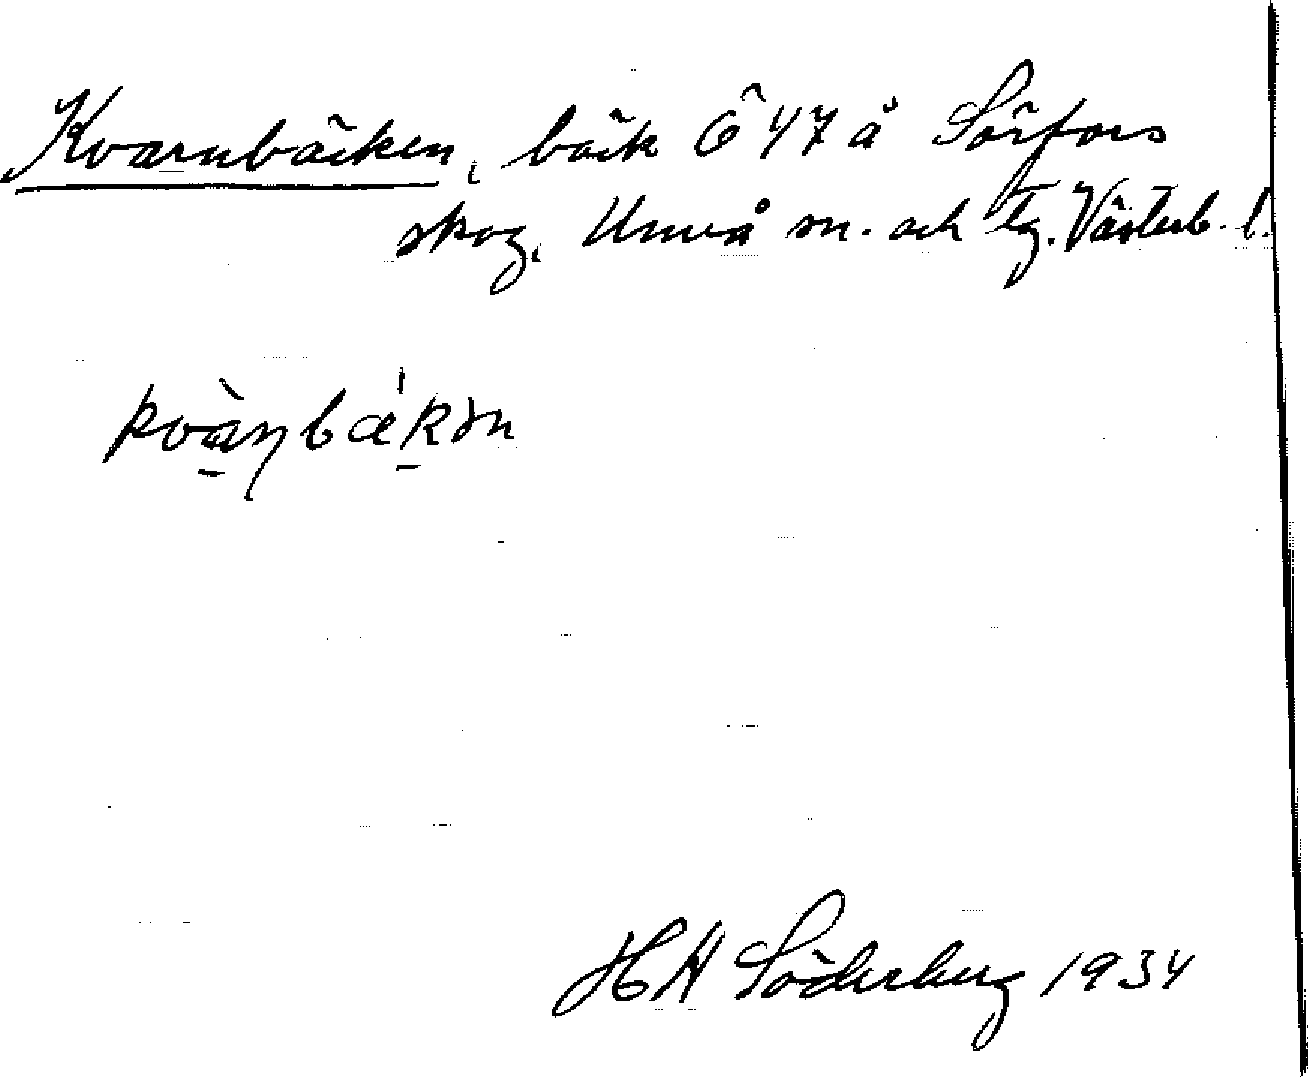 Kvarnbäcken, bäck Ö 47 å Sörfors
skog, Umeå sn. och tg. Västerb. l.
kvàṇbækən
H A Söderberg 1934